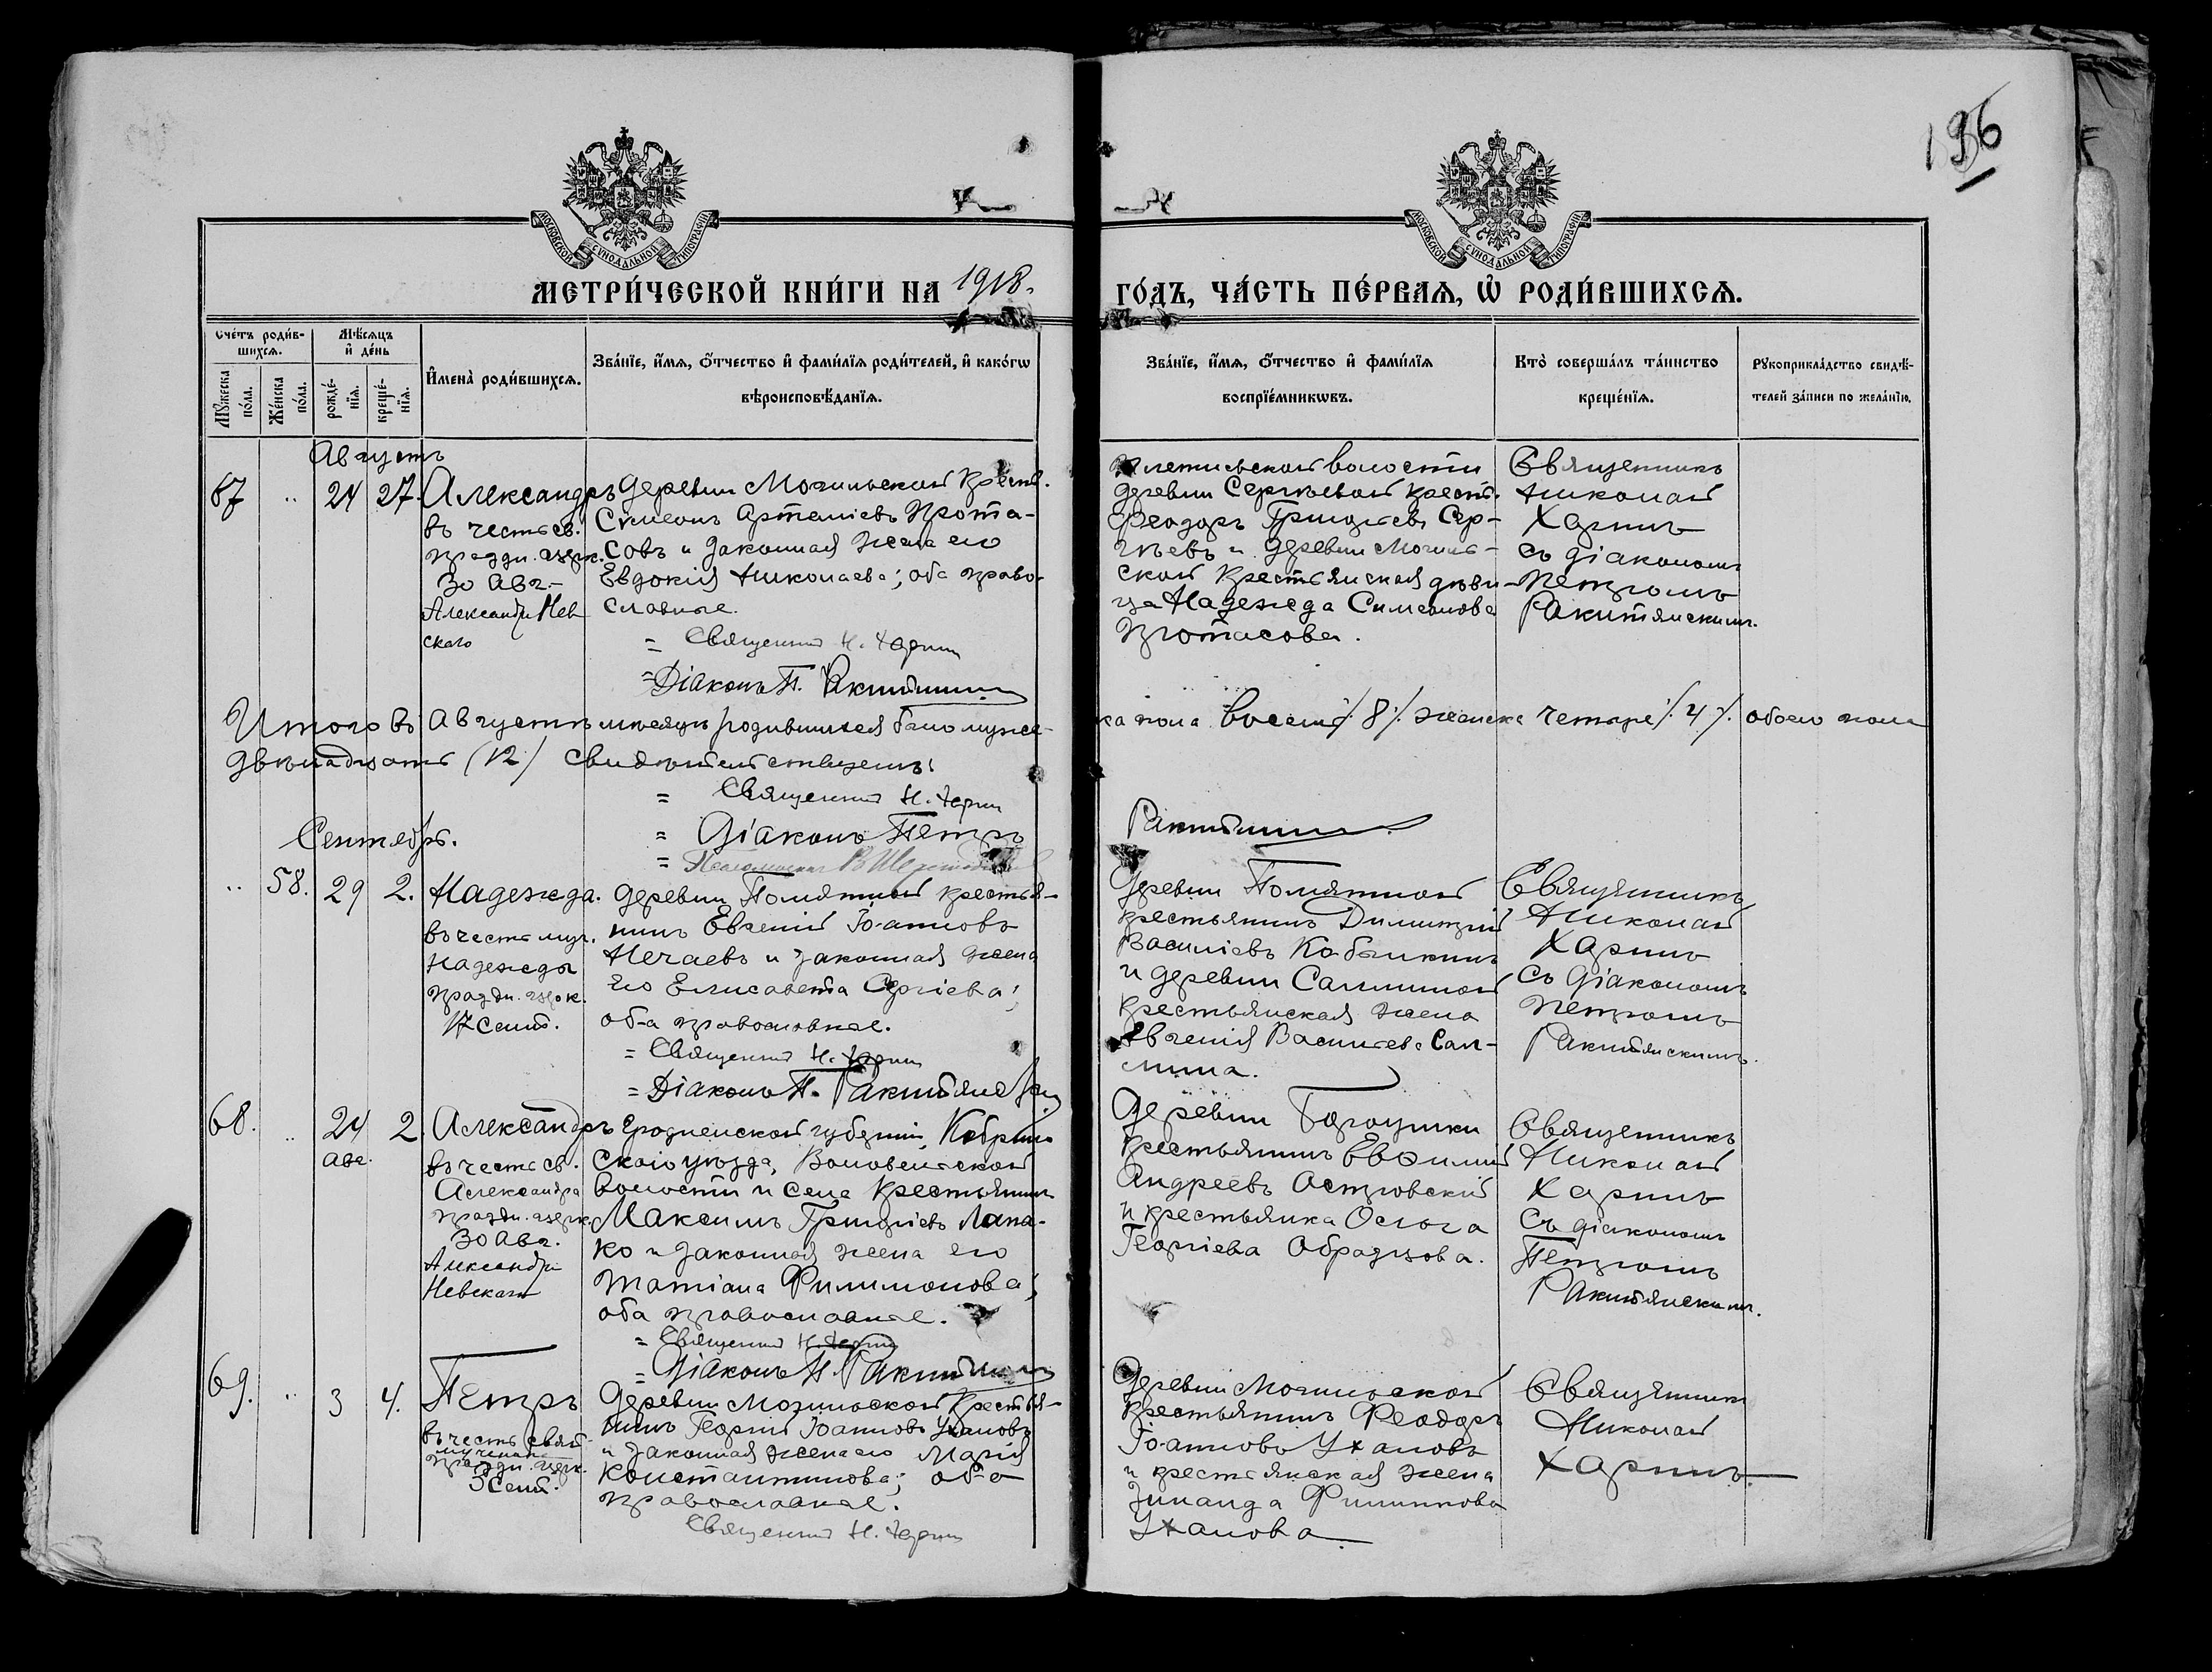 136
МОСКОВСКОЙ СѴНОДАЛЬНОЙ ТИПОГРАФІИ
МОСКОВСКОЙ СѴНОДАЛЬНОЙ ТИПОГРАФІИ
МЕТРИ́ЧЕСКОЙ КНИ́ГИ НА 1918. ГО́ДЪ, ЧА́СТЬ ПЕ́РВАѦ, Ѡ҆ РОДИ́ВШИХСѦ.
Сче́тъ роди́в-
шихсѧ.
Мѣ́сѧцъ
и҆ де́нь
Мꙋ́жеска
по́ла.
Же́нска
по́ла.
рожде́-
нїѧ.
креще́-
нїѧ.
И҆мена̀ роди́вшихсѧ.
Зва́нїе, и҆́мѧ, ѻ҆́тчество и҆ фами́лїѧ роди́телей, и҆ како́гѡ
вѣроисповѣ́данїѧ.
Зва́нїе, и҆́мѧ, ѻ҆́тчество и҆ фами́лїѧ
воспрїе́мникѡвъ.
Кто̀ соверша́лъ та́инство
креще́нїѧ.
Рꙋкоприкла́дство свидѣ́-
телей за́писи по жела́нїю.
Августъ
67 " 24 27. Александръ
въ честь св.
праздн. церк.
30 Авг.
Александра Нев
скаго
Деревни Могильской Крест.
Симеонъ Артеміевъ Прота-
совъ и законная жена его
Евдокія Николаева; оба право-
славные.
= Священникъ Н. Харинъ
= Діаконъ П. Ракитянскій
волости
деревни Сергѣевой крест.
Феодоръ Григорьевъ Сер-
гѣевъ и деревни Могиль-
ской крестьянская дѣви-
ца Надежда Симеонова
Протасова.
Священникъ
Николай
Харинъ
съ діакономъ
Петромъ
Ракитянскимъ.
Итого въ Августѣ мѣсяцѣ родившихся было муже-
ска пола восемь /8/ женска четыре /4/ обоего пола
двѣнадцать (12) свидѣтельствуемъ:
= Священникъ Н. Харинъ
= Діаконъ Петръ Ракитянскій
= Псаломщикъ В.
Сентябрь.
" 58. 29 2. Надежда.
въ честь муч.
Надежды
праздн. церк.
17 Сент.
Деревни Помяткой крестья-
нинъ Евгеній Іоанновъ
Нечаевъ и законная жена
его Елисавета Сергіева;
оба православные.
= Священникъ Н. Харинъ
= Діаконъ П. Ракитянскій
Деревни Помяткой
крестьянинъ Димитрій
Василіевъ Кобылкинъ
и деревни Салминой
крестьянская жена
Евгенія Васильева Сал-
мина.
Священникъ
Николай
Харинъ
Съ діакономъ
Петромъ
Ракитянскимъ.
68. " 24 2. Александръ
авг.
въ честь св.
Александра
праздн. церк.
30 Авг.
Александра
Невскаго
Гродненской губерніи, Кобрин-
скаго уѣзда, Воловельской
волости и села крестьянинъ
Максимъ Григоріевъ Лапа-
ко и законная жена его
Татіана Филимонова;
оба православные.
= Священникъ Н. Харинъ
= Діаконъ П. Ракитянскій
Деревни
крестьянинъ Евѳимій
Андреевъ Островскій
и крестьянка Ольга
Георгіева Образцова.
Священникъ
Николай
Харинъ
Съ діакономъ
Петромъ
Ракитянскимъ.
69. " 3 4. Петръ
въ честь свят.
мученика
праздн. церк.
3 Сент.
Деревни Могильской Крестья-
нинъ Георгій Іоанновъ Ухановъ
и законная жена его Марія
Константинова; оба
православные.
Священникъ Н. Харинъ
Деревни Могильской
крестьянинъ Феодоръ
Іоанновъ Ухановъ
и крестьянская жена
Зинаида Филиппова
Уханова.
Священникъ
Николай
Харинъ.